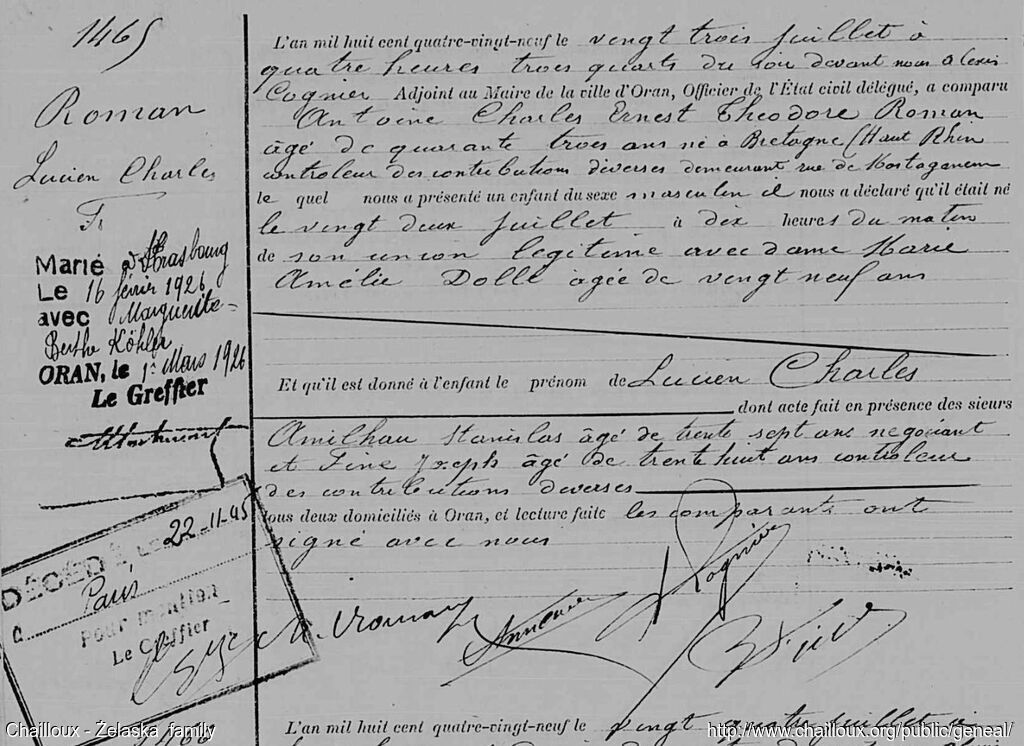 1465
Roman
Lucien Charles
Marié à Strasbourg
Le 16 février 1926
avec Marguerite-
Berthe Köhler
ORAN, le 1er Mars 1926
Le Greffier
DÉCÉDÉ LE 22-11-45
à Paris
Pour mention
Le Greffier
L'an mil huit cent quatre-vingt-neuf le vingt trois juillet à
quatre heures trois quarts du soir devant nous Alexis
Cognier Adjoint au Maire de la ville d'Oran, Officier de l'État civil délégué, a comparu
Antoine Charles Ernest Théodore Roman
âgé de quarante trois ans né à Bretagne (Haut Rhin
controleur des contributions diverses demeurant rue de Mostaganem
le quel nous a présenté un enfant du sexe masculin il nous a déclaré qu'il était né
le vingt deux juillet à dix heures du matin
de son union légitime avec dame Marie
Amélie Dollé agée de vingt neuf ans
Et qu'il est donné à l'enfant le prénom de Lucien Charles
dont acte fait en présence des sieurs
Amilhau Stanislas âgé de trente sept ans négociant
et Fine Joseph âgé de trente huit ans controleur
des contributions diverses
tous deux domiciliés à Oran, et lecture faite les comparants ont
signé avec nous
Roman
Cognier
L'an mil huit cent quatre-vingt-neuf le vingt quatre juillet
Chailloux - Żelaska family
http://www.chailloux.org/public/geneal/